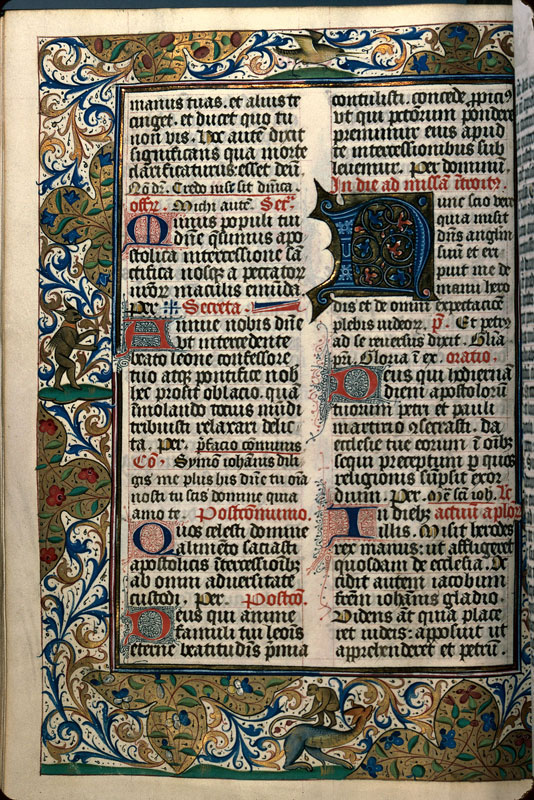 manus tuas. et alius te
cinget. et ducet quo tu
non vis. Hoc autē dixit
significans qua morte
clarificaturus esset deū
Credo in se sit dn̄ica.
offr̄. Michi autē. Secr̄.
Munus populi tui
dn̄e qsumus apo
stolica intercessione sā
ctifica nosq; a peccator
nr̄orū maculis emūda
Per. Secreta.
Annue nobis dn̄e
vt intercedente
beato leone confessore
tuo atq; pontifice nob
hec prosit oblacio. quā
īmolando tocius mūdi
tribuisti relaxari delic
ta. Per. p̄facio cōmunis
Cō. Symon iohānis dili
gis me plus his dn̄e tu oīa
nosti tu scis domine quia
amo te. Postcōmunio.
Quos celesti domine
alimēto saciasti
apostolicis ītercessiōib;
ab omni adversitate
custodi. Per. Postcō.
Deus qui anime
famuli tui leois
eterne beatitudīs p̄mia
contulisti. concede p̄pici9
vt qui petorum pondere
premimur eius apud
te intercessionibus sub
leuemur. Per dominū.
In die ad missā ītroit9.
Nunc scio vere
quia misit
dn̄s angelum
suū et eri
puit me de
manu hero
dis et de omni expectaciōe
plebis iudeor. p̄. Et petr9
ad se reuersus dixit. Gl̄ia
pr̄i. Gloria ī ex. oratio.
Deus qui hodiernā
diem apostolorū
tuorum petri et pauli
martirio ɔsecrasti. da
ecclesie tue eorum ī oīb;
sequi preceptum p quos
religionis sūpsit exor
dium. Per. Mē sc̄i ioh. Le
In dieb; actuū aplor
illis. Misit herodes
rex manus: ut affligeret
quosdam de ecclesia. Oc
cidit autem iacobum
frēm iohānis gladio.
Videns āt quia place
ret iudeis: apposuit ut
apprehenderet et petrū.